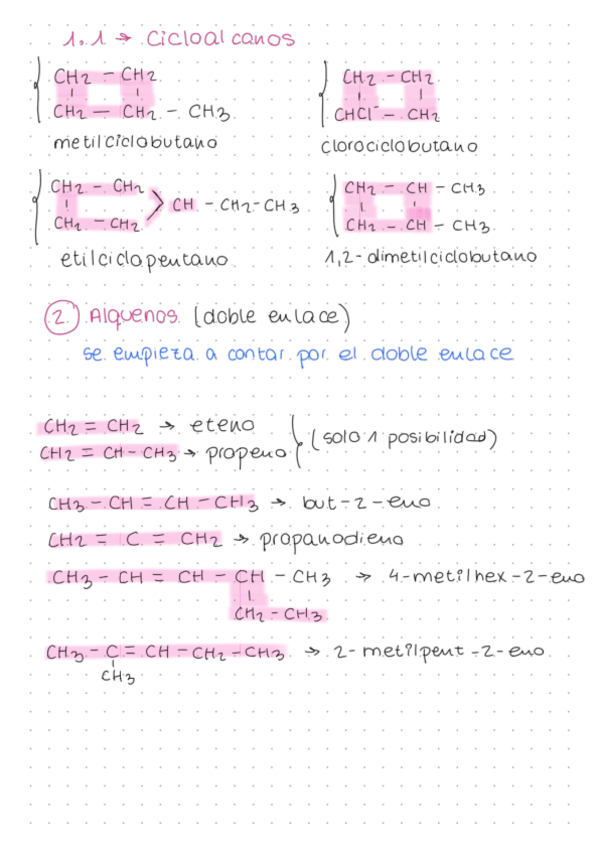 1.1 → Cicloalcanos
CH2 - CH2
CH2 - CH2 - CH3
metilciclobutano
CH2 - CH2
CHCl - CH2
clorociclobutano
CH2 - CH2
CH2 - CH2 > CH - CH2 - CH3
etilciclopentano
CH2 - CH - CH3
CH2 - CH - CH3
1,2-dimetilciclobutano
2. Alquenos (doble enlace)
se empieza a contar por el doble enlace
CH2 = CH2 → eteno
CH2 = CH - CH3 → propeno
(solo 1 posibilidad)
CH3 - CH = CH - CH3 → but-2-eno
CH2 = C = CH2 → propanodieno
CH3 - CH = CH - CH - CH3 → 4-metilhex-2-eno
CH2 - CH3
CH3 - C = CH - CH2 - CH3 → 2-metilpent-2-eno
CH3